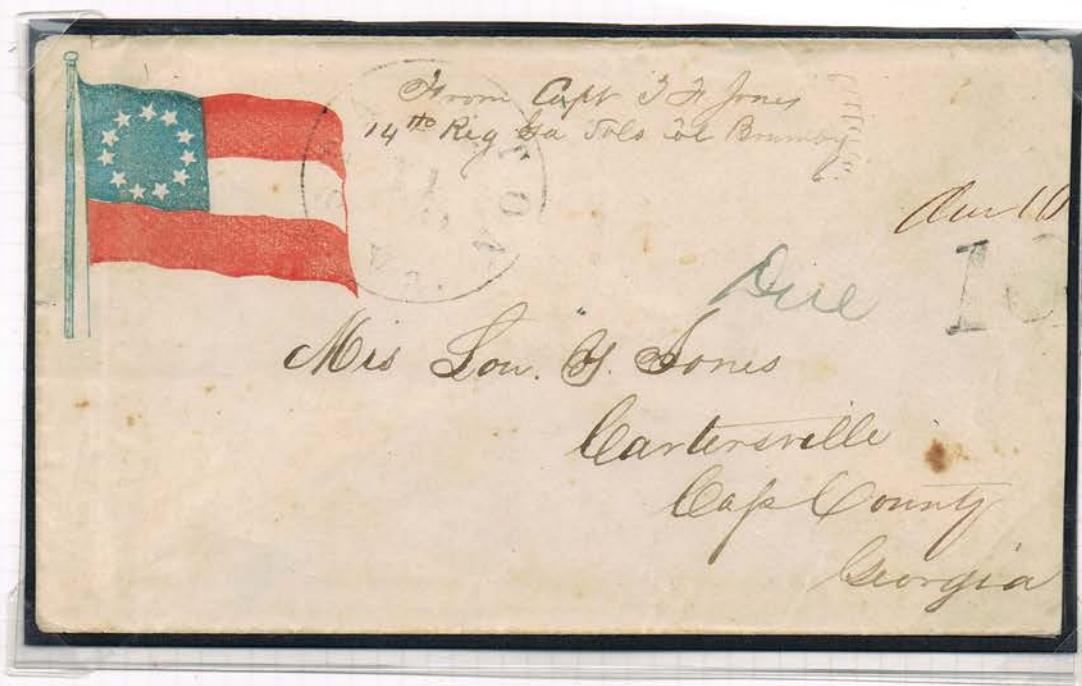 From Capt T F Jones
14th Reg Ga Vols Col Brumby
Due 10
Due 10
Mis Lou. Y. Jones
Cartersville
Cass County
Georgia